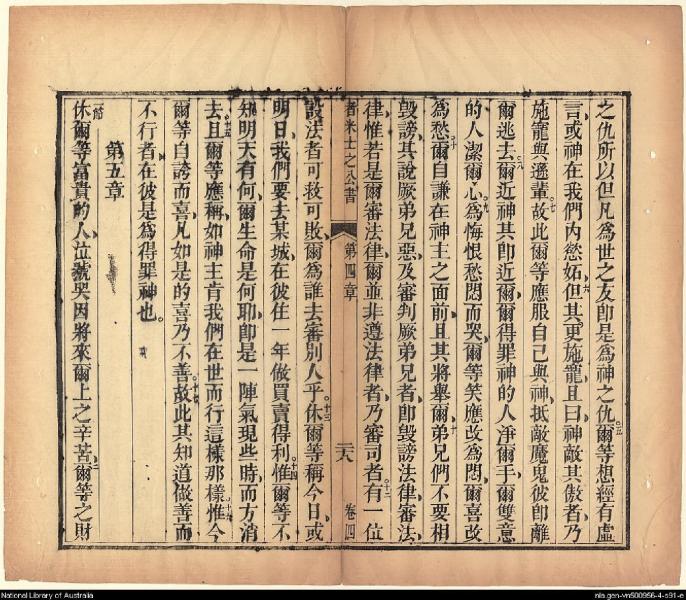 之仇所以但凡為世之友卽是為神之仇五爾等想經有虛
言或神在我們內慾妬六但其更施寵且曰神敵其傲者乃
施寵與遜輩七故此爾等應服自己與神抵敵魔鬼彼卽離
爾逃去八爾近神其卽近爾爾得罪神的人淨爾手爾雙意
的人潔爾心九為悔恨愁悶而哭爾等笑應改為悶爾喜改
為愁十爾自謙在神主之面前且其將舉爾弟兄們不要相
毀謗其說厥弟兄惡及審判厥弟兄者卽毀謗法律審法
律惟若是爾審法律爾並非遵法律者乃審司者十二有一位
者米士之公書 第四章 二六 卷四
設法者可救可敗爾為誰去審別人乎十三休爾等稱今日或
明日我們要去某城在彼住一年做買賣得利十四惟爾等不
知明天有何爾生命是何耶卽是一陣氣現些時而方消
去十五且爾等應稱如神主肯我們在世而行這樣那樣十六惟今
爾等自誇而喜凡如是的喜乃不善十七故此其知道做善而
不行者在彼是為得罪神也
第五章
一節休爾等富貴的人泣號哭因將來爾上之辛苦二爾等之財
National Library of Australia
nla.gen-vn500956-4-s91-e